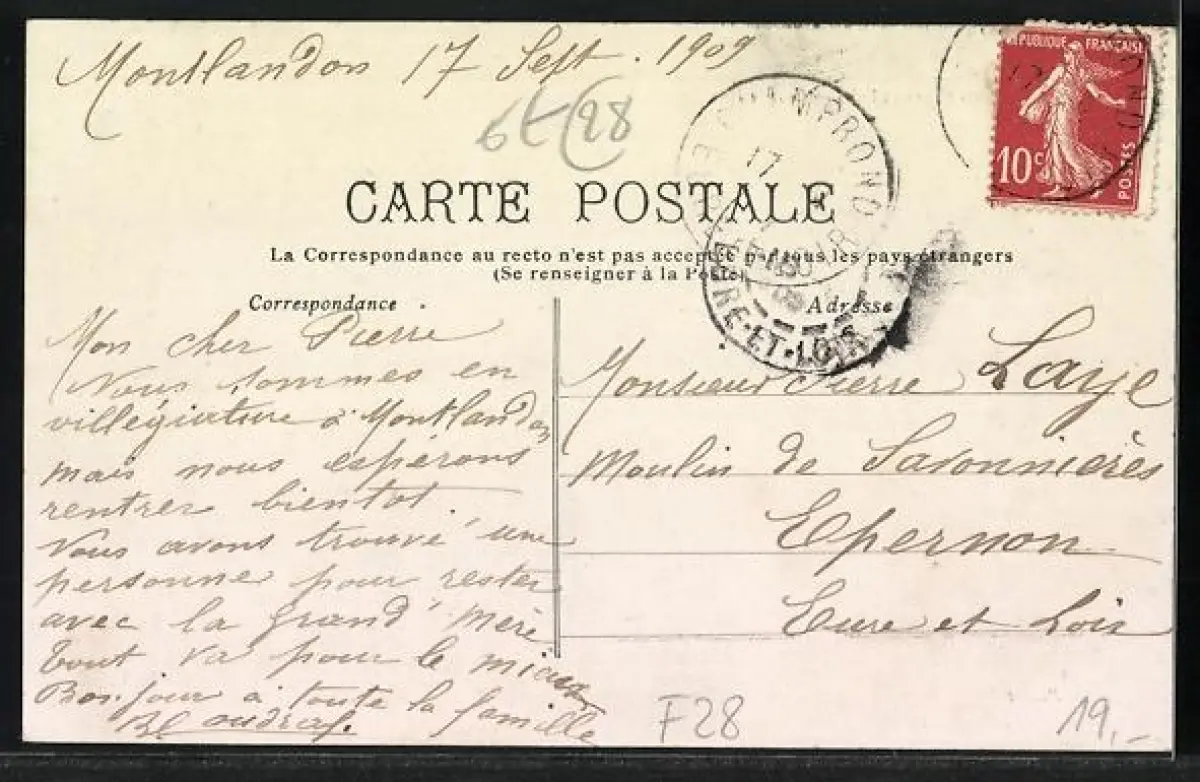 Montlandon 17 Sept. 1909
28
CHAMPROND
17
EURE-ET-LOIR
REPUBLIQUE FRANÇAISE
10c
POSTES
CARTE POSTALE
La Correspondance au recto n'est pas acceptée par tous les pays étrangers
(Se renseigner à la Poste)
Correspondance
Adresse
Mon cher Pierre
Nous sommes en
villégiature à Montlandon
mais nous espérons
rentrer bientot.
Nous avons trouvé une
personne pour rester
avec la grand'mère
tout va pour le mieux
Bonjour à toute la famille
Monsieur Pierre Laye
Moulin de Savonnières
Epernon
Eure et Loir
F28
19,-